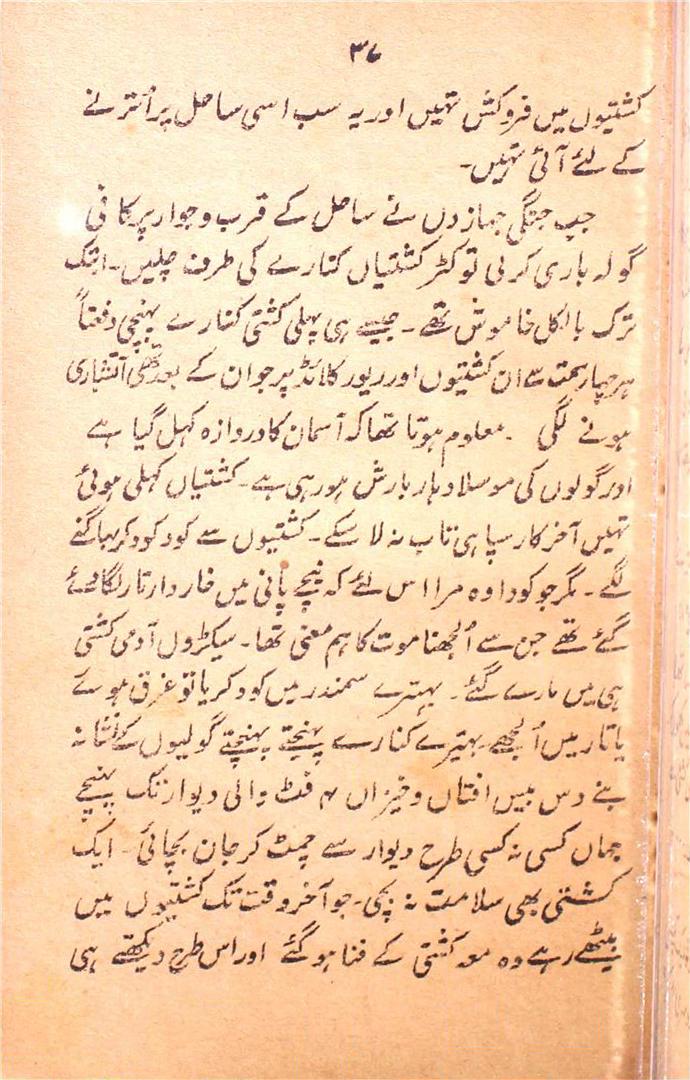 ۳۷
کشتیوں میں فروکش تہیں اور یہ سب اسی ساحل پر اُترنے
کے لئے آئی تہیں۔
جب جنگی جہازوں نے ساحل کے قرب و جوار پر کافی
گولہ باری کر لی تو کٹر کشتیاں کنارے کی طرف چلیں۔ ابتک
ترک بالکل خاموش تھے۔ جیسے ہی پہلی کشتی کنارے پہنچی دفعتاً
ہر چہار سمت سے ان کشتیوں اور ریور کلائڈ پر جو ان کے بعد تھی آتشباری
ہونے لگی ۔ معلوم ہوتا تھا کہ آسمان کا دروازہ کہل گیا ہے
اور گولوں کی موسلا دہار بارش ہو رہی ہے۔ کشتیاں کہلی ہوئی
تہیں آخرکار سپاہی تاب نہ لا سکے۔ کشتیوں سے کود کود کر بہاگنے
لگے۔ مگر جو کودا وہ مرا اس لئے کہ نیچے پانی میں خاردار تار لگا دئے
گئے تھے جن سے اُلجھنا موت کا ہم معنی تھا۔ سیکڑوں آدمی کشتی
ہی میں مارے گئے۔ بہتیرے سمندر میں کود کر یا تو غرق ہوئے
یا تار میں اُلجھے بہتیرے کنارے پہنچتے پہنچتے گولیوں کے نشانہ
بنے دس بیس افتاں و خیزاں ۴ فٹ والی دیوار تک پہنچے
جہاں کسی نہ کسی طرح دیوار سے چمٹ کر جان بچائی۔ ایک
کشتی بھی سلامت نہ بچی۔ جو آخر وقت تک کشتیوں میں
بیٹھے رہے وہ معہ کشتی کے فنا ہو گئے اور اس طرح دیکھتے ہی